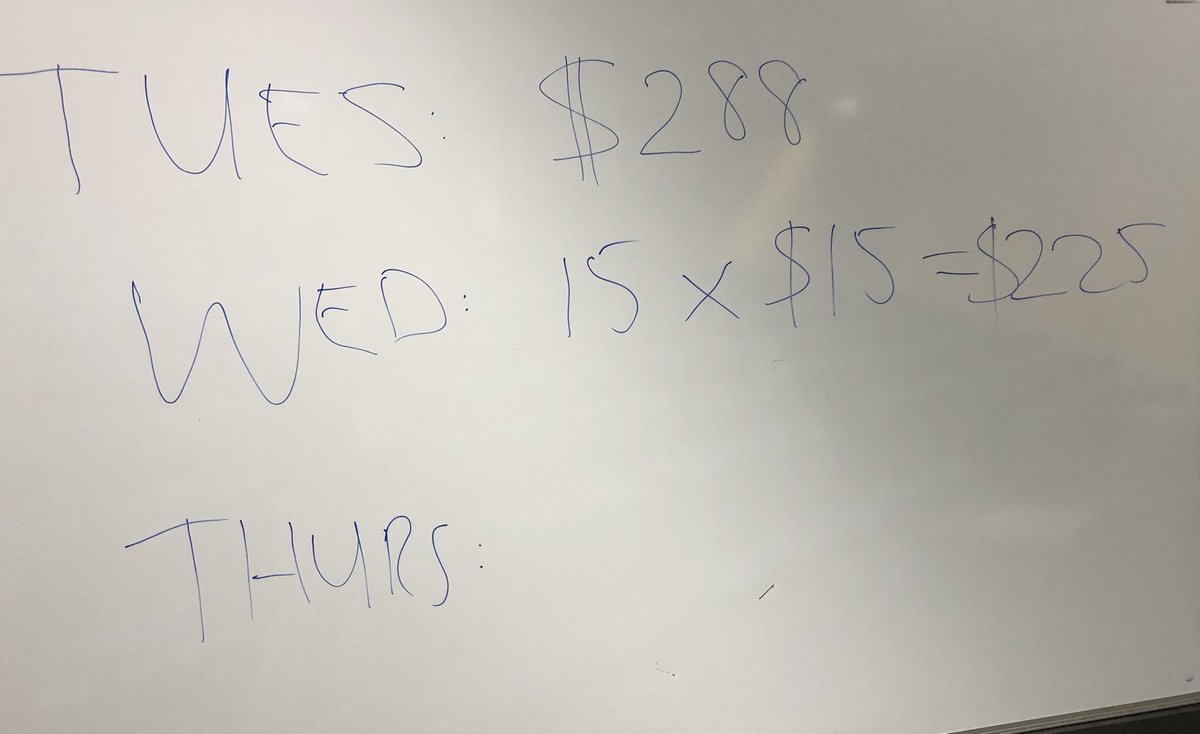 TUES: $288
WED: 15 x $15 = $225
THURS: